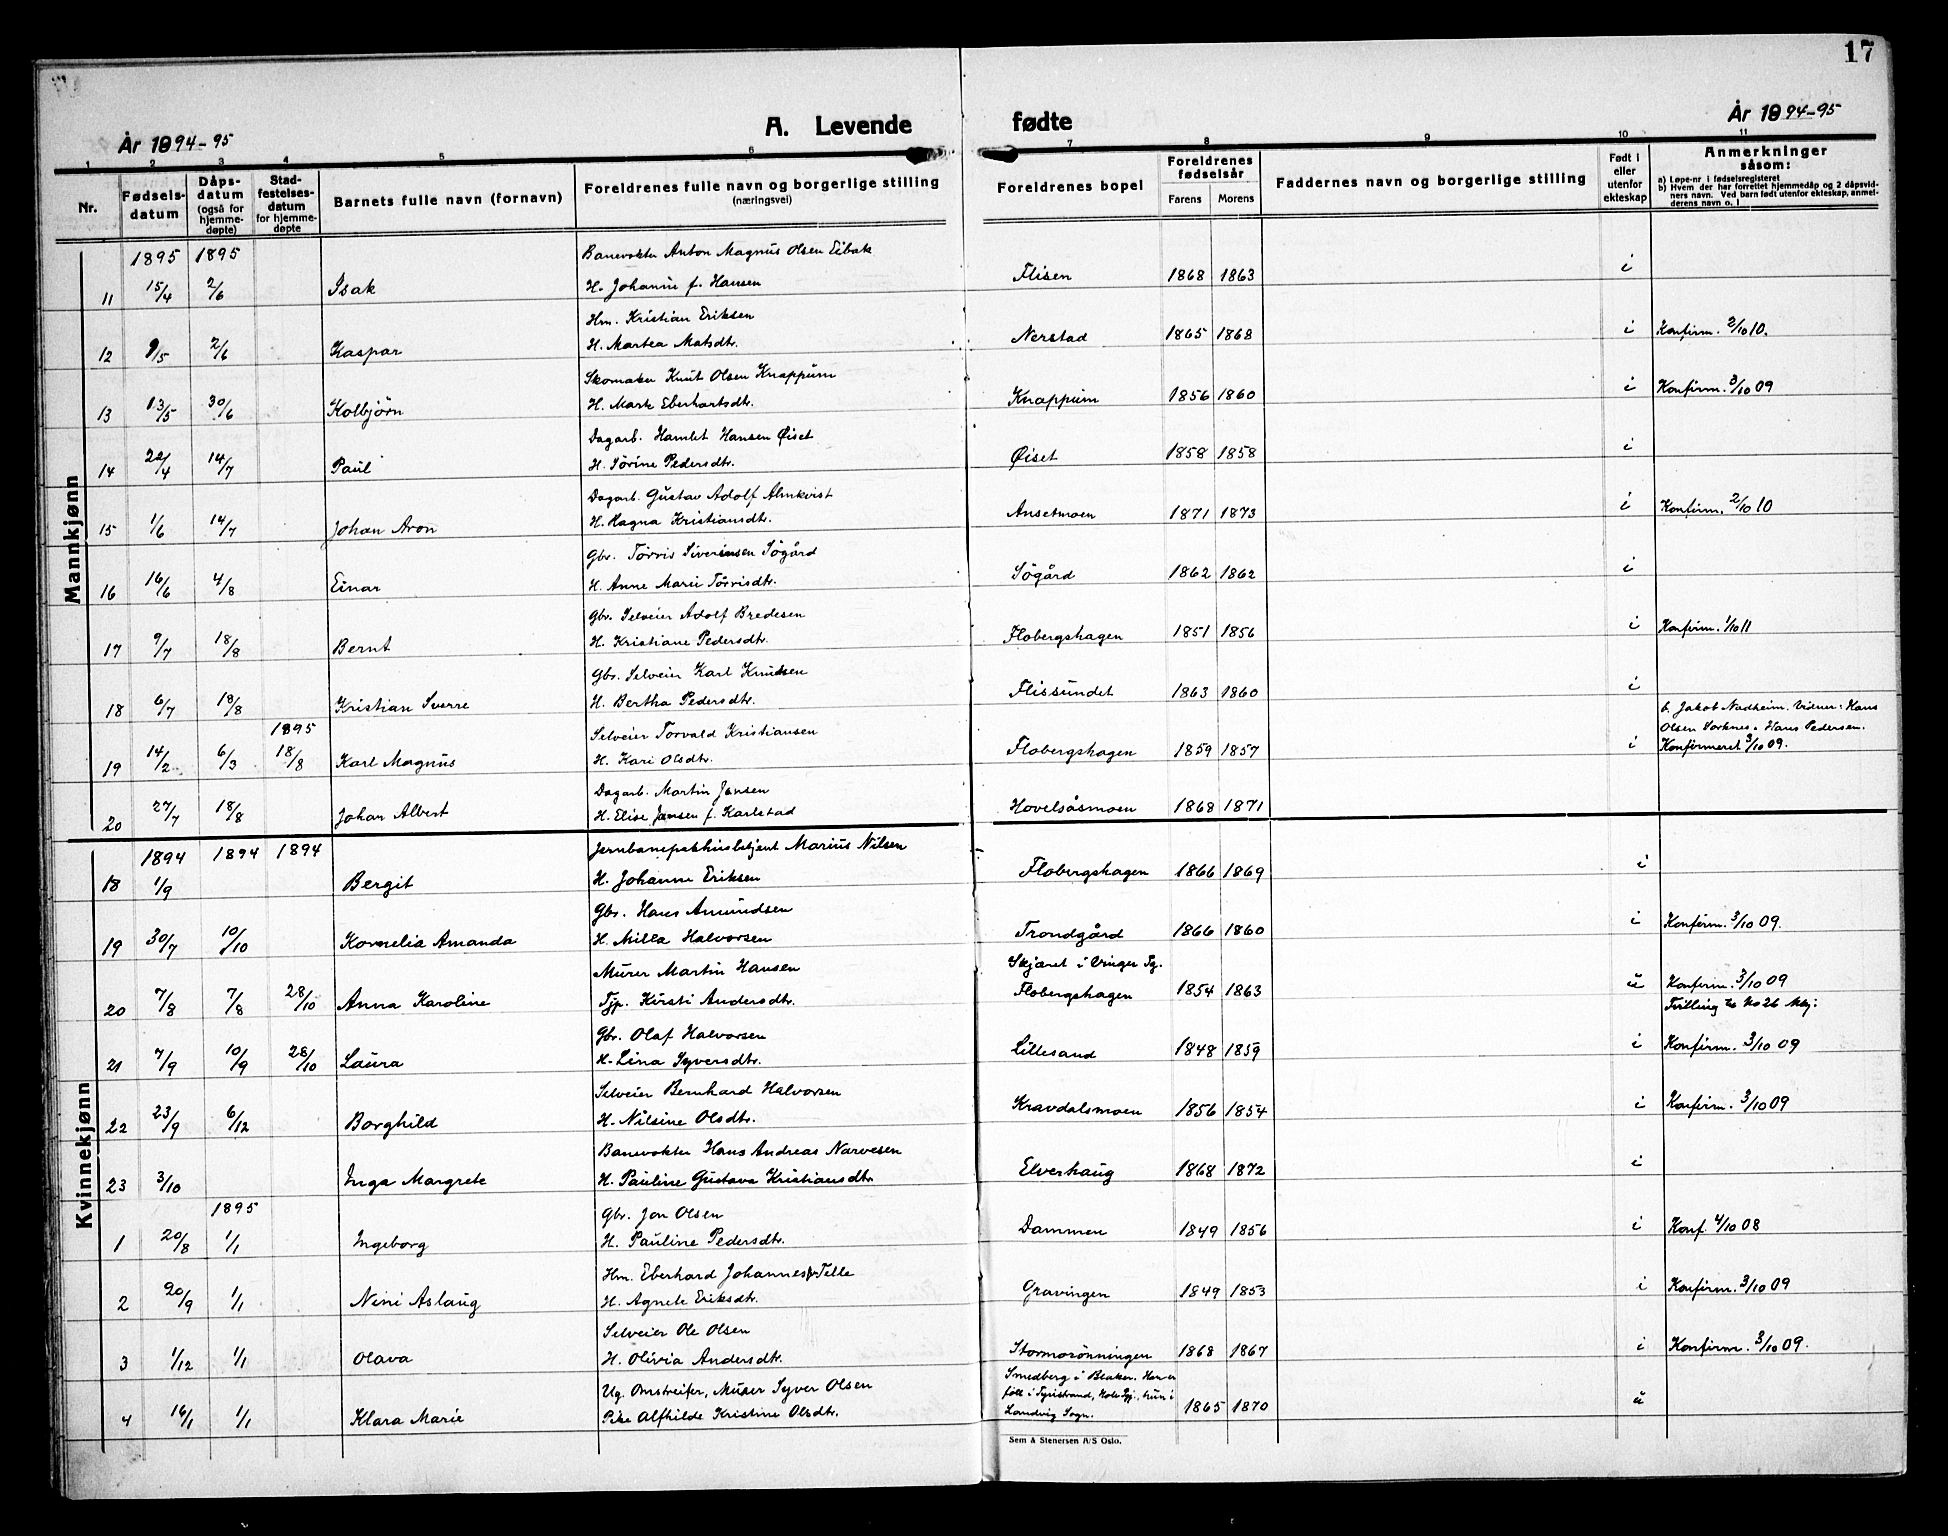 17
År 1894-95
A. Levende fødte
År 1894-95
1 2 3 4 5 6 7 8 9 10 11
Nr. Fødselsdatum Dåpsdatum (også for hjemmedøpte) Stadfestelsesdatum for hjemmedøpte Barnets fulle navn (fornavn) Foreldrenes fulle navn og borgerlige stilling (næringsvei) Foreldrenes bopel Foreldrenes fødselsår Farens Morens Faddernes navn og borgerlige stilling Født i eller utenfor ekteskap Anmerkninger såsom:
a) Løpe-nr i fødselsregisteret
b) Hvem der har forrettet hjemmedåp og 2 dåpsvidners navn. Ved barn født utenfor ekteskap, anmelderens navn o. l
Mannkjønn
1895 1895 Banevokter Anton Magnus Olsen Eibak
11 15/4 2/6 Isak H. Johanne f. Hansen Flisen 1868 1863 i
Hm. Kristian Eriksen
12 9/5 2/6 Kaspar H. Martea Matsdtr. Nerstad 1865 1868 i Konfirm. 2/10 10.
Skomaker Knut Olsen Knappum
13 13/5 30/6 Kolbjørn H. Marte Eberhartsdtr. Knappum 1856 1860 i Konfirm. 3/10 09
Dagarb. Hamlet Hansen Øiset
14 22/4 14/7 Paul H. Sørine Pedersdtr. Øiset 1858 1858 i
Dagarb. Gustav Adolf Almkvist
15 1/6 14/7 Johan Aron H. Magna Kristiansdtr. Ansetmoen 1871 1873 i Konfirm. 2/10 10
Gbr. Torris Siverinsen Søgård
16 16/6 4/8 Einar H. Anne Marie Torrisdtr. Søgård 1862 1862 i
Gbr. Selveier Adolf Bredesen
17 9/7 18/8 Bernt H. Kristiane Pedersdtr. Flobergshagen 1851 1856 i Konfirm. 1/10 11
Gbr. Selveier Karl Knudsen
18 6/7 18/8 Kristian Sverre H. Bertha Pedersdtr. Flissundet 1863 1860 i
1895 Selveier Torvald Kristiansen b. Jakob Nadheim. Vidner: Hans Olsen Sorknes. Hans Pedersen.
19 14/2 6/3 18/8 Karl Magnus H. Kari Olsdtr. Flobergshagen 1859 1857 i Konfirmeret 3/10 09.
Dagarb. Martin Jansen
20 27/7 18/8 Johan Albert H. Elise Jansen f. Karlstad Hovelsåsmoen 1868 1871
Kvinnekjønn
1894 1894 1894 Jernbanepakhusbetjent Marius Nilsen
18 1/9 Bergit H. Johanne Eriksen Flobergshagen 1866 1869 i
Gbr. Hans Amundsen
19 30/7 10/10 Kornelia Amanda H. Milla Halvorsen Trondgård 1866 1860 i Konfirm. 3/10 09.
Murer Martin Hansen Skjæret i Vinger Sg.
20 7/8 7/8 28/10 Anna Karoline Tjp. Kirsti Andersdtr. Flobergshagen 1854 1863 u Konfirm. 3/10 09
Tvilling No 26
Gbr. Olaf Halvorsen
21 7/9 10/9 28/10 Laura H. Lina Syversdtr. Lillesand 1848 1859 i Konfirm. 3/10 09
Selveier Bernhard Halvorsen
22 23/9 6/12 Borghild H. Nilsine Olsdtr. Kravdalsmoen 1856 1854 i Konfirm. 3/10 09
Banevokter Hans Andreas Narvesen
23 3/10 Inga Margrete H. Pauline Gustava Kristiansdtr Elverhaug 1868 1872 i
1895 Gbr. Jon Olsen
1 20/8 1/1 Ingeborg H. Pauline Pedersdtr. Dammen 1849 1856 i Konf. 4/10 08
Hm. Eberhard Johannes Telle
2 20/9 1/1 Nini Aslaug H. Agnete Eriksdtr. Gravingen 1849 1853 i Konfirm. 3/10 09
Selveier Ole Olsen
3 1/12 1/1 Olava H. Olivia Andersdtr. Stormorønningen 1868 1867 i Konfirm. 3/10 09.
Ug. Omstreifer, Murer Syver Olsen Smedberg i Blaker. Han er
født i Tyristrand, Hole Pgj., hun i
4 16/1 1/1 Klara Marie Pike Alfhilde Kristine Olsdtr. Landvig Sogn. 1865 1870 u
Sem & Stenersen A/S Oslo.